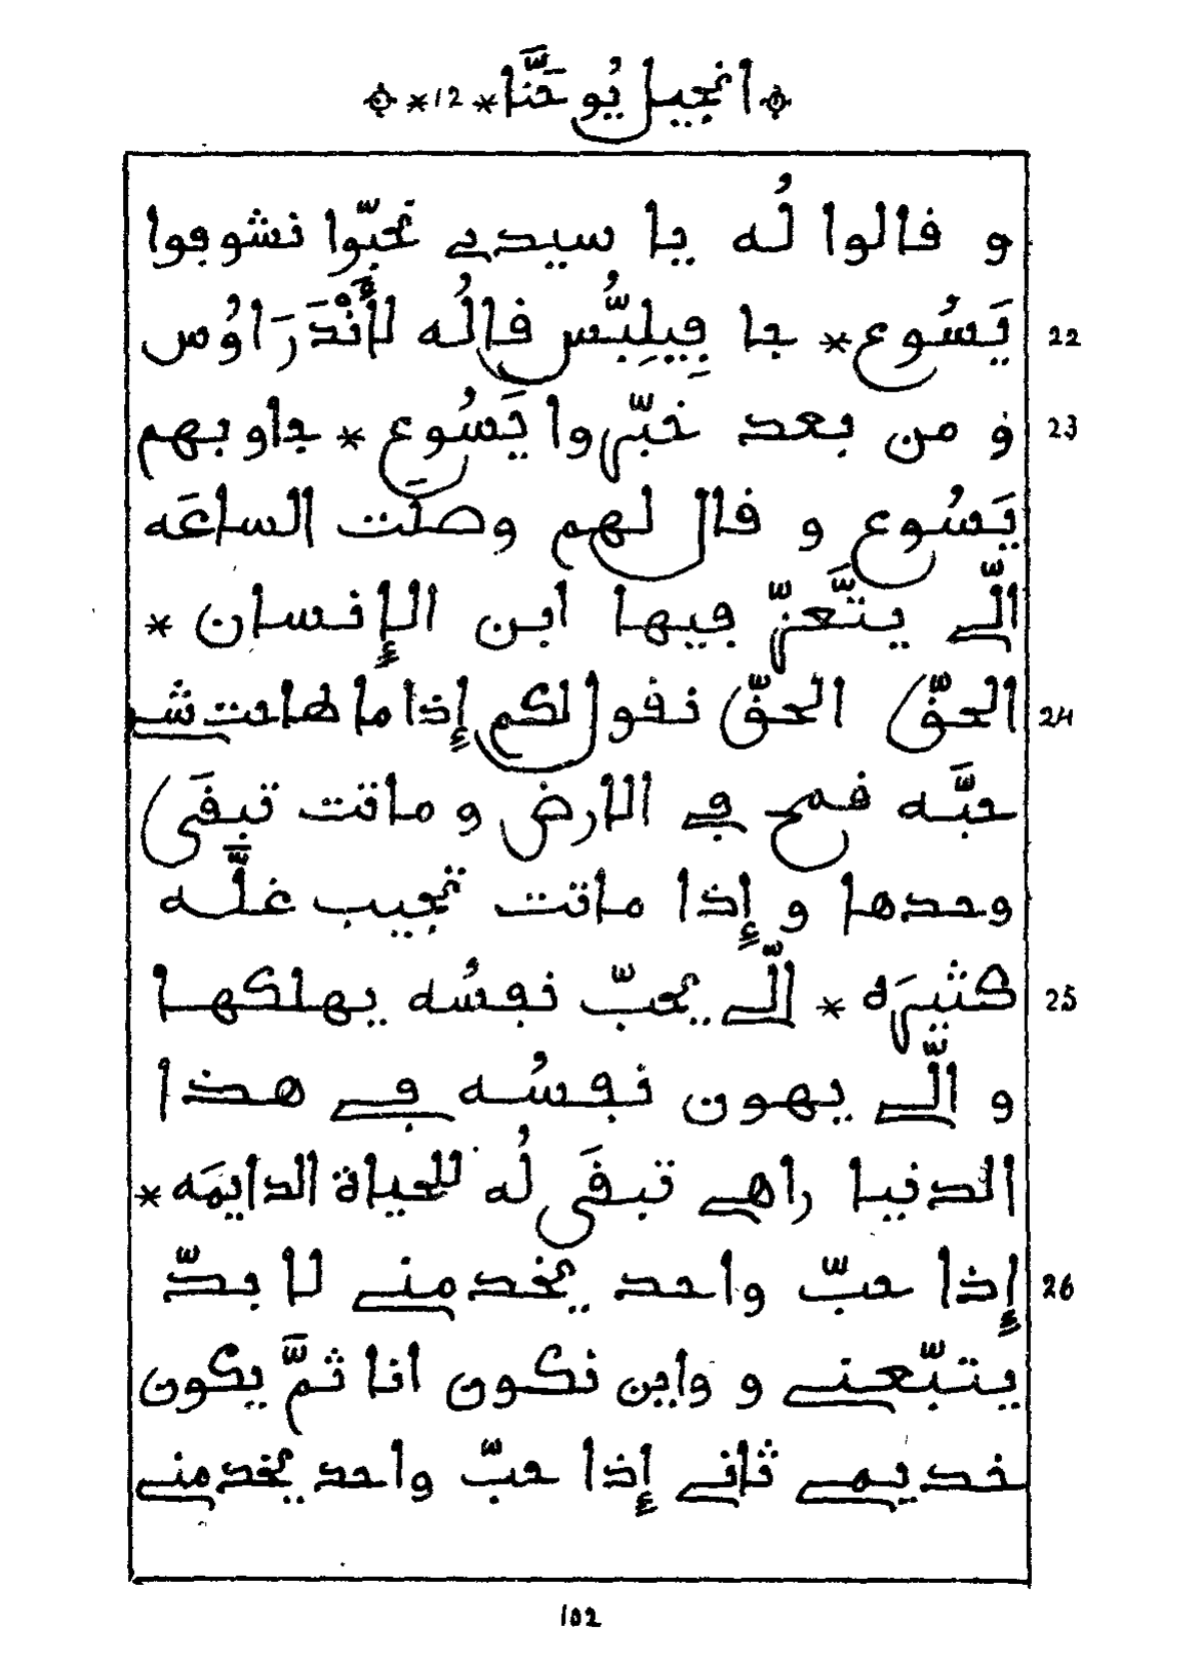 انجيل يُوحَنَّا * 12 *
و ڧالوا لُه يا سيدي نحبّوا نشوڢوا
22 يَسُوع * جا ڢِيلِبُّس ڧالُه لأَنْدَرَاوُس
23 و من بعد خبّروا يَسُوع * جاوبهم
يَسُوع و ڧال لهم وصلَت الساعَه
الّي يتَّعزّ ڢيها ابن الإنسان *
24 الحڧّ الحڧّ نڧول لكم إذا ما طاحت شي
حبَّه ڧمح ڢي الارض و ماتت تبڧَى
وحدها و إذا ماتت تجيب غلَّه
25 كثيرَه * الّي يحبّ نڢسُه يهلكها
و الّي يهون نڢسُه ڢي هذا
الدنيا راهي تبڧَى لُه للحياة الدايمَه *
26 إذا حبّ واحد يخدمني لا بدّ
يتبّعني و واين نكون انا ثَمَّ يكون
خديمي ثاني إذا حبّ واحد يخدمني
102